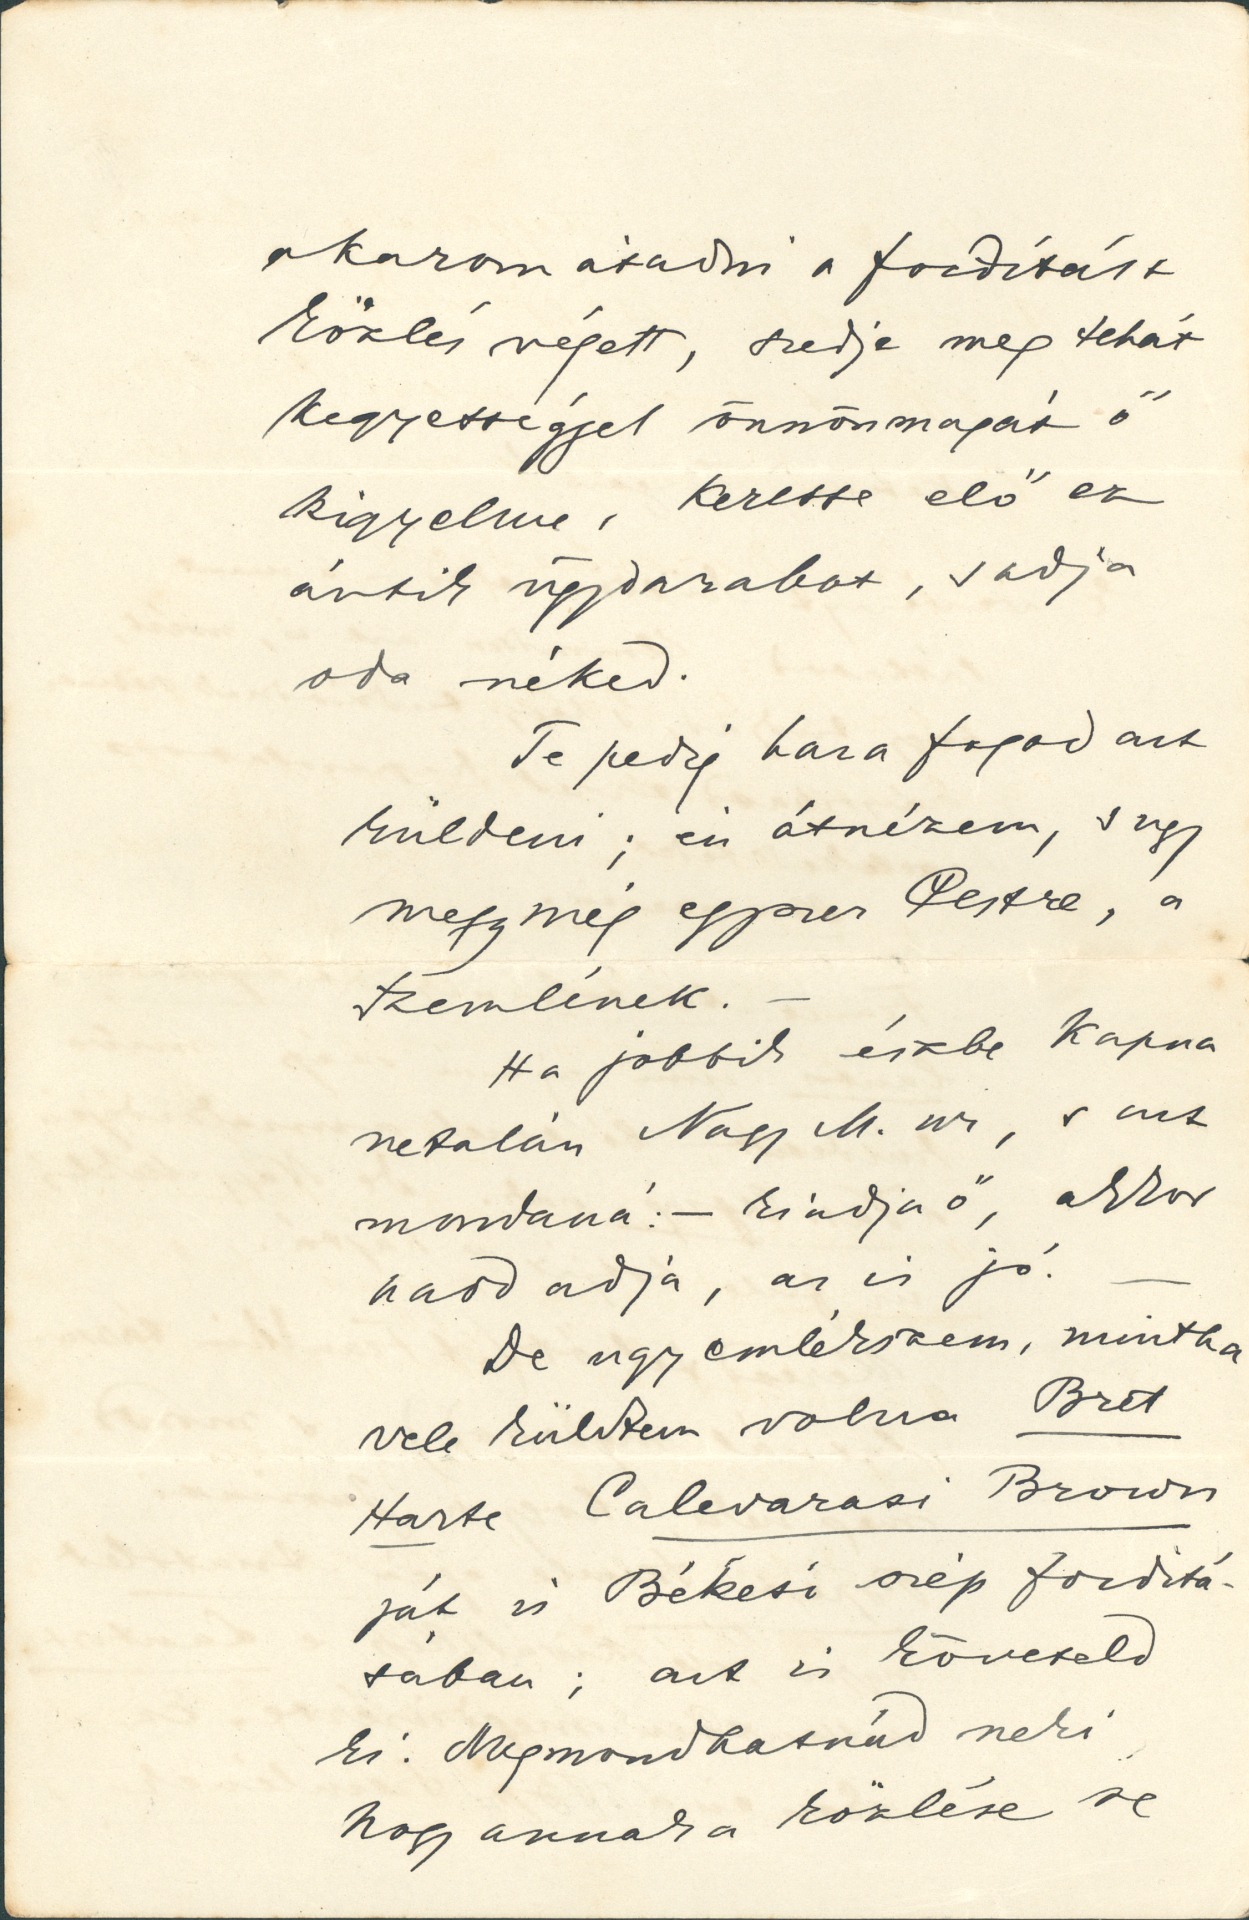 akarom átadni a fordítást
közlés végett, szedje meg tehát
kegyességgel önnönmagát ő
kigyelme, keresse elő ez
ántik ügydarabot, s adja
oda néked.
Te pedig haza fogod azt
küldeni; én átnézem, s ugy
megy még egyszer Pestre, a
Szemlének. —
Ha jobbik észbe kapna
netalán Nagy M. ur, s azt
mondaná: — kiadja ő, akkor
naod adja, az is jó. —
De ugy emlékszem, mintha
vele küldtem volna Bret
Harte Calevarasi Brown
ját is Békesi szép fordítá-
sában; azt is követeld
ki. Megmondhatnád neki
hogy annak a közlése se